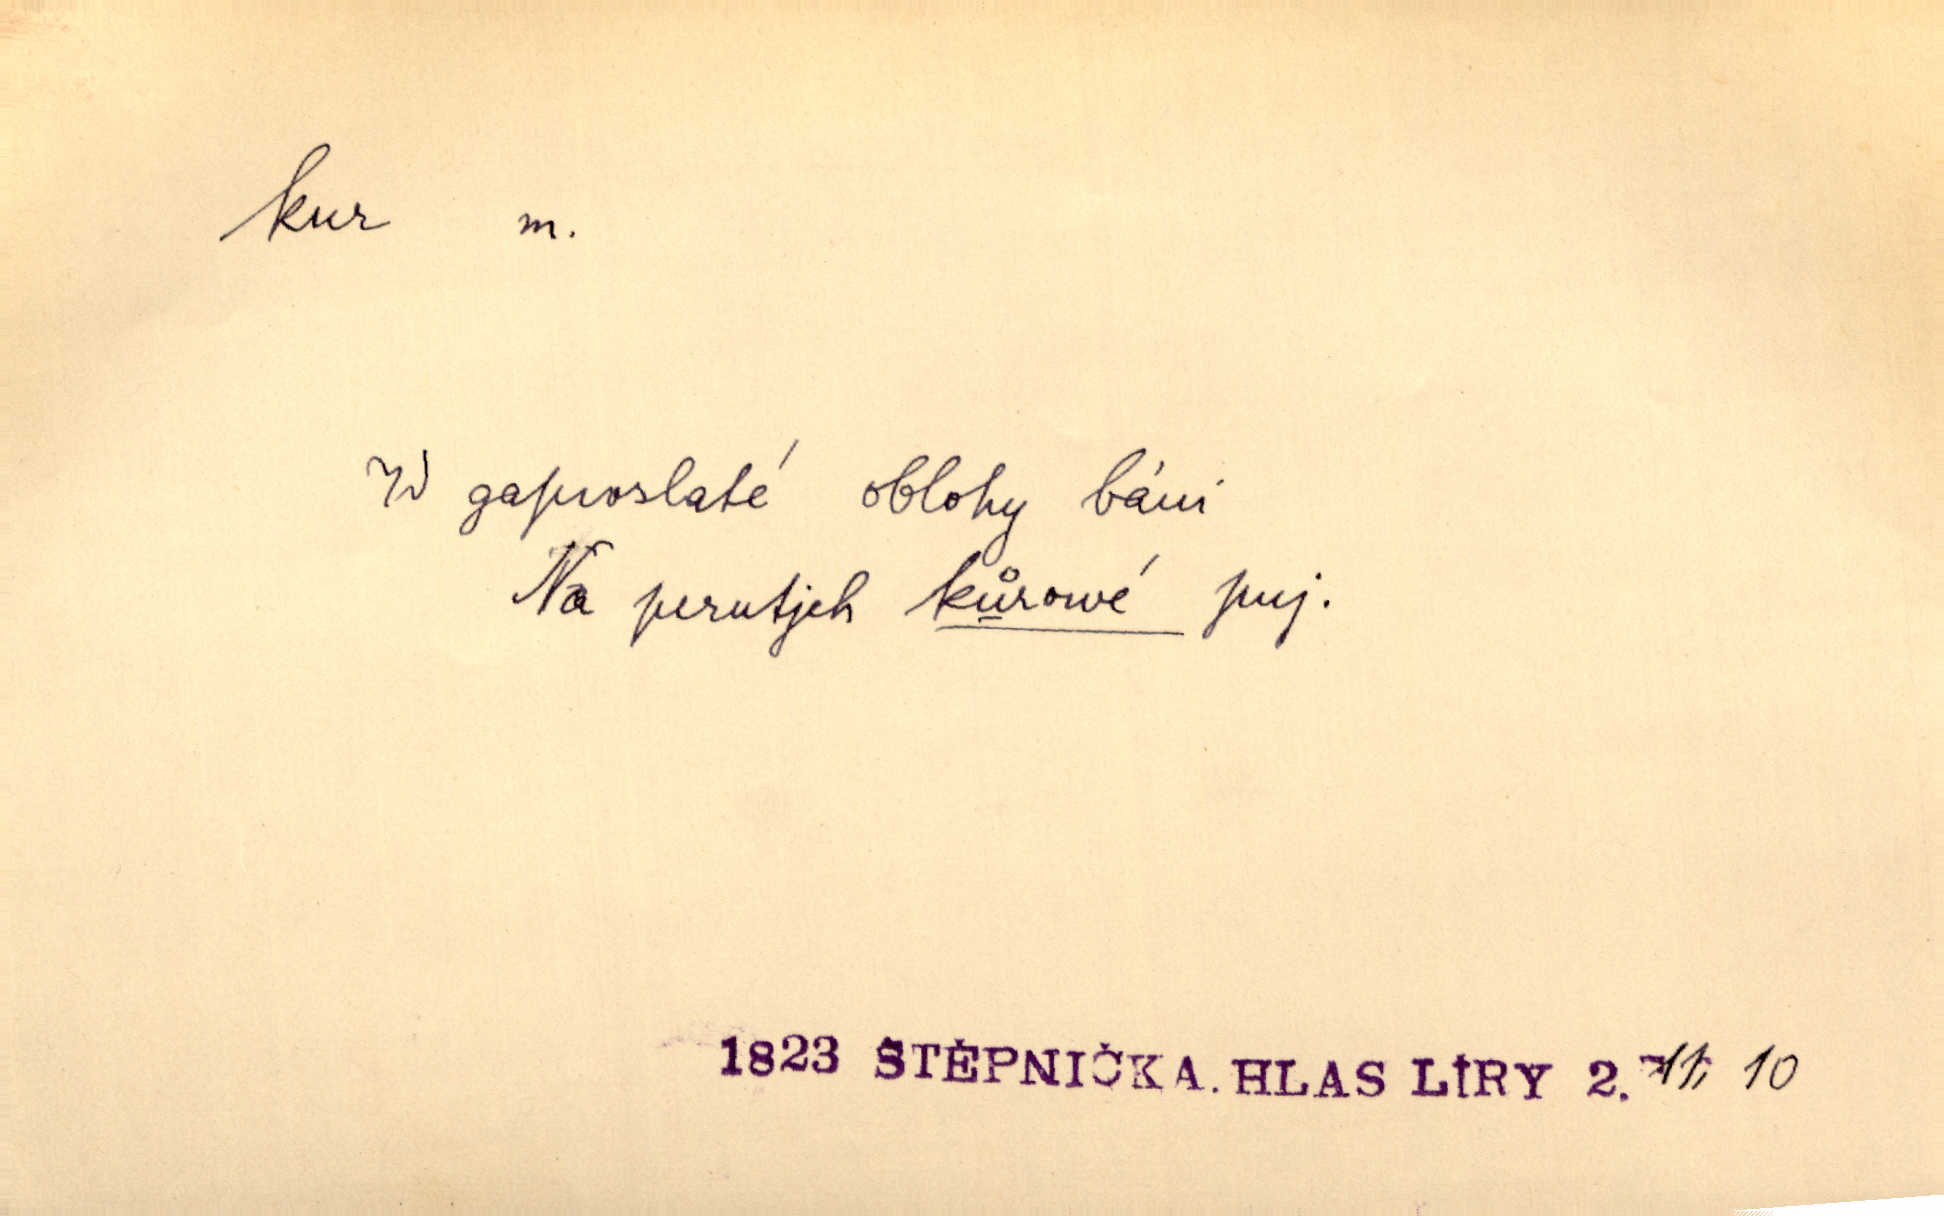 kur m.
W gaproslaté oblohy báni
Na perutjch kůrowé puj.
1823 ŠTĚPNIČKA. HLAS LÍRY 2. 11, 10